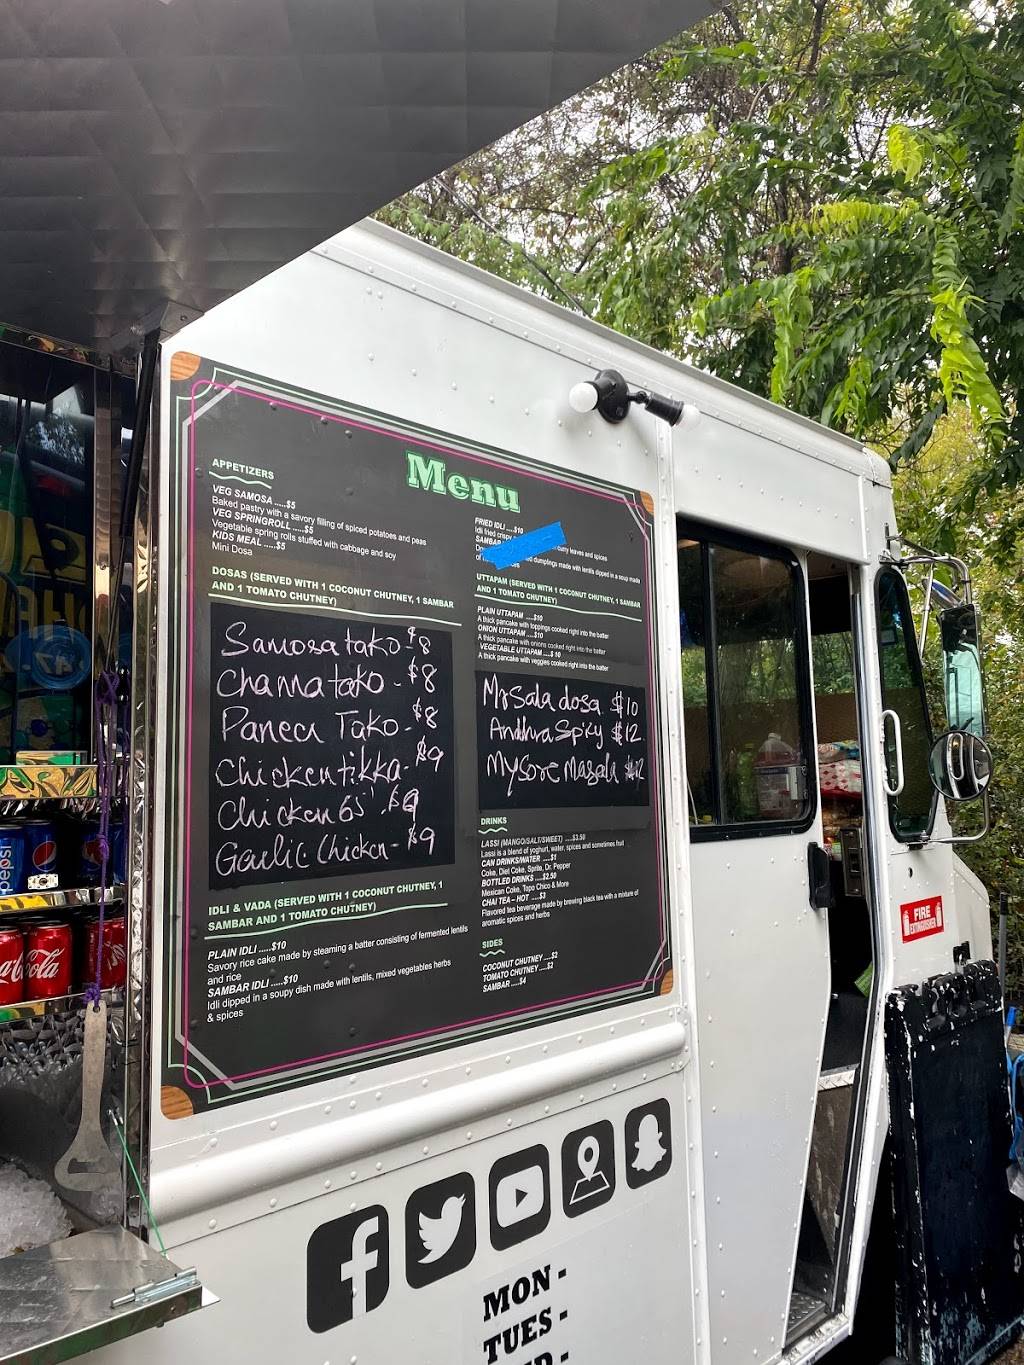 Menu
APPETIZERS
VEG SAMOSA .....$5
Baked pastry with a savory filling of spiced potatoes and peas
VEG SPRINGROLL .....$5
Vegetable spring rolls stuffed with cabbage and soy
KIDS MEAL .....$5
Mini Dosa
DOSAS (SERVED WITH 1 COCONUT CHUTNEY, 1 SAMBAR
AND 1 TOMATO CHUTNEY)
Samosa tako - $8
Channa tako - $8
Paneer Tako - $8
Chicken tikka - $9
Chicken 65' - $9
Garlic Chicken - $9
IDLI & VADA (SERVED WITH 1 COCONUT CHUTNEY, 1
SAMBAR AND 1 TOMATO CHUTNEY)
PLAIN IDLI .....$10
Savory rice cake made by steaming a batter consisting of fermented lentils
and rice
SAMBAR IDLI .....$10
Idli dipped in a soupy dish made with lentils, mixed vegetables herbs
& spices
FRIED IDLI .....$10
Idli fried crispy curry leaves and spices
SAMBAR
dumplings made with lentils dipped in a soup made
of
UTTAPAM (SERVED WITH 1 COCONUT CHUTNEY, 1 SAMBAR
AND 1 TOMATO CHUTNEY)
PLAIN UTTAPAM .....$10
A thick pancake with toppings cooked right into the batter
ONION UTTAPAM .....$10
A thick pancake with onions cooked right into the batter
VEGETABLE UTTAPAM .....$ 10
A thick pancake with veggies cooked right into the batter
Masala dosa $10
Andhra Spicy $12
Mysore Masala $12
DRINKS
LASSI (MANGO/SALT/SWEET) .....$3.50
Lassi is a blend of yoghurt, water, spices and sometimes fruit
CAN DRINKS/WATER .....$1
Coke, Diet Coke, Sprite, Dr. Pepper
BOTTLED DRINKS .....$2.50
Mexican Coke, Topo Chico & More
CHAI TEA – HOT .....$3
Flavored tea beverage made by brewing black tea with a mixture of
aromatic spices and herbs
SIDES
COCONUT CHUTNEY .....$2
TOMATO CHUTNEY .....$2
SAMBAR .....$4
FIRE
EXTINGUISHER
pepsi
Coca-Cola
MON -
TUES -